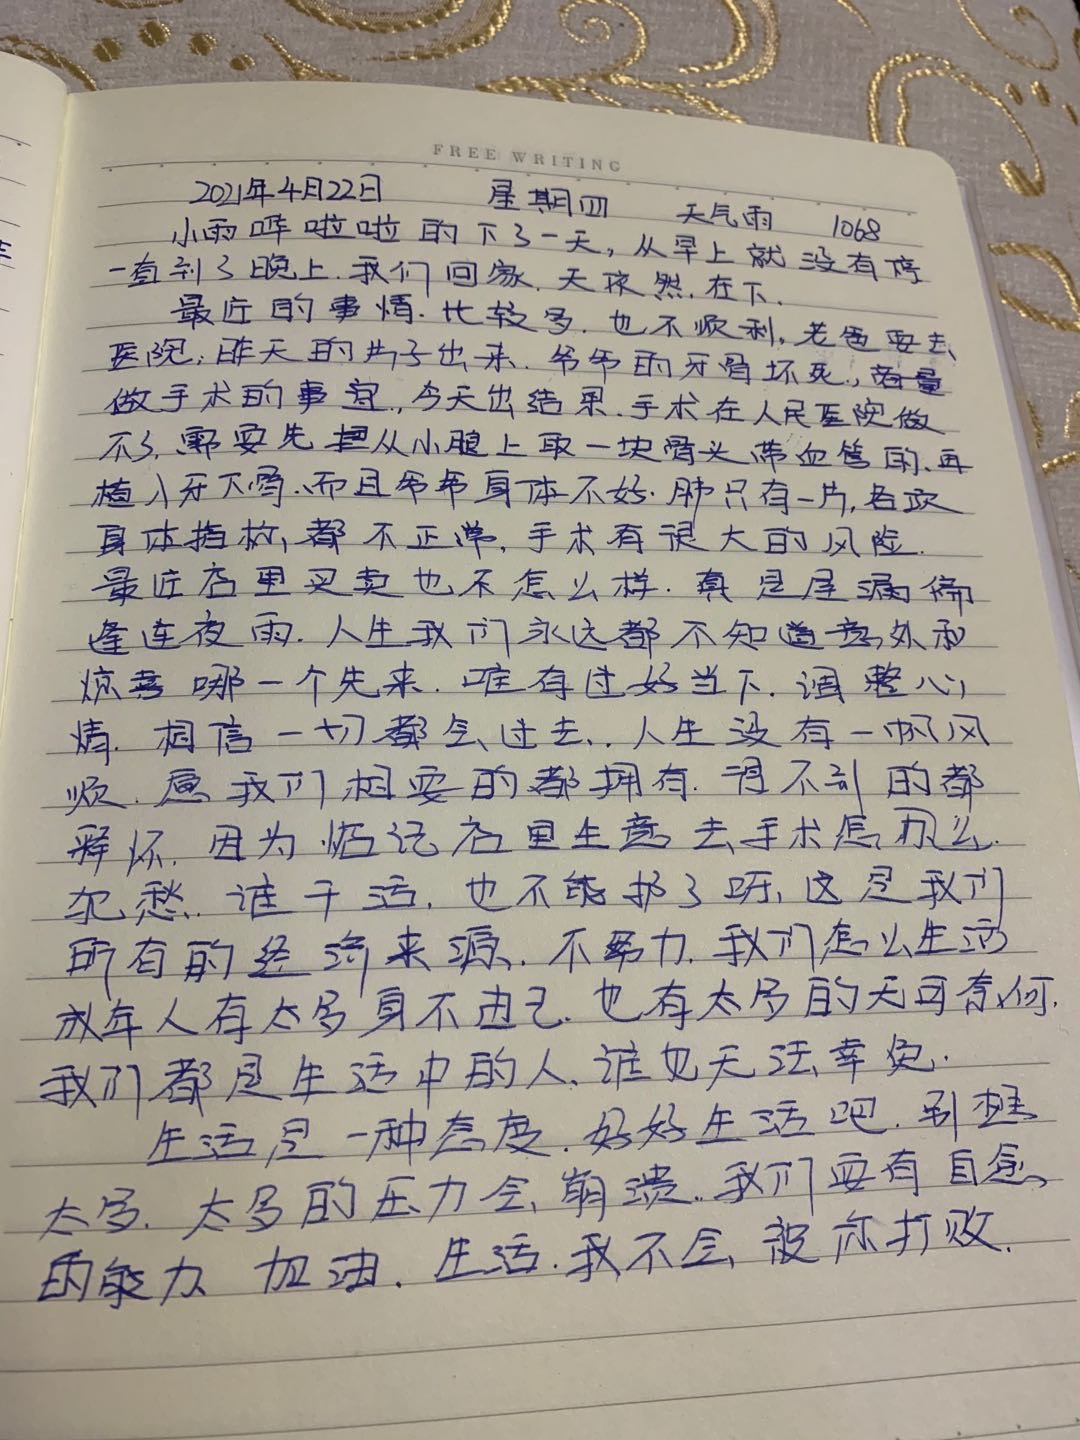 FREE WRITING
2021年4月22日 星期四 天气雨 1068
小雨哗啦啦的下了一天,从早上就没有停
一直到了晚上.我们回家.天依然.在下.
最近的事情.比较多.也不顺利,老爸要去
医院,昨天的片子出来.爷爷的牙骨坏死,商量
做手术的事宜,今天出结果.手术在人民医院做
不了,需要先把从小腿上取一块骨头带血管的.再
植入牙下骨.而且爷爷身体不好.肺只有一片,各项
身体指标,都不正常,手术有很大的风险.
最近店里买卖也不怎么样.真是屋漏偏
逢连夜雨.人生我们永远都不知道意外和
惊喜哪一个先来.唯有过好当下.调整心
情.相信一切都会过去..人生没有一帆风
顺.愿我们想要的都拥有.得不到的都
释怀.因为惦记店里生意去手术怎那么
犯愁.谁干活.也不能扔了呀,这是我们
所有的经济来源.不努力.我们怎么生活
成年人有太多身不由己.也有太多的无可奈何.
我们都是生活中的人.谁也无法幸免.
生活是一种态度.好好生活吧.别想
太多.太多的压力会崩溃.我们要有自愈
的能力 加油.生活.我不会被你打败.